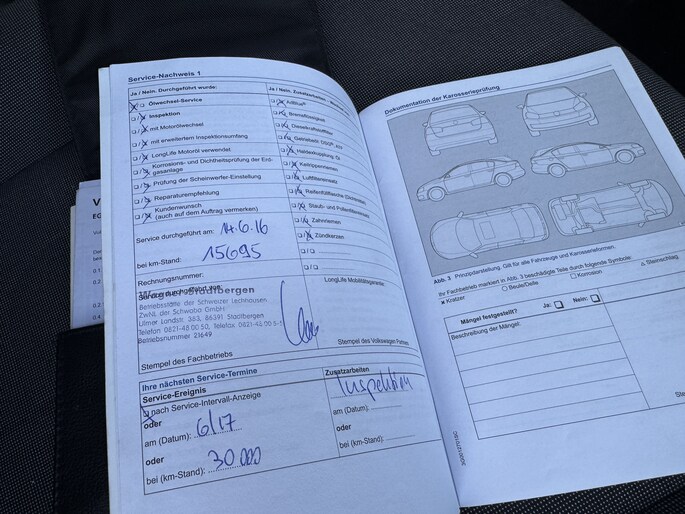 Service-Nachweis 1
Ja / Nein. Durchgeführt wurde:
Ölwechsel-Service
Inspektion
mit Motorölwechsel
mit erweitertem Inspektionsumfang
LongLife Motoröl verwendet
Korrosions- und Dichtheitsprüfung der Erd-
gasanlage
Prüfung der Scheinwerfer-Einstellung
Reparaturempfehlung
Kundenwunsch
(auch auf dem Auftrag vermerken)
Service durchgeführt am: 14.6.16
bei km-Stand: 15695
Rechnungsnummer:
Service durchgeführt von:
Stadtbergen
Betriebsstätte der Schwaba
ZwNL der Schwaba GmbH
Ulmer Landstr. 383, 86391 Stadtbergen
Telefon 0821-48 00 50, Telefax 0821-48 00 5
Betriebsnummer 21649
Stempel des Fachbetriebs
Ja / Nein.
AdBlue®
Bremsflüssigkeit
Dieselkraftstofffilter
Haldexkupplung: Öl
Keilrippenriemen
Luftfiltereinsatz
Zahnriemen
Zündkerzen
LongLife Mobilitätsgarantie:
Stempel des Volkswagen Partners
Ihre nächsten Service-Termine
Service-Ereignis
nach Service-Intervall-Anzeige
oder
am (Datum): 6/17
oder
bei (km-Stand): 30 000
Zusatzarbeiten
Inspektion
am (Datum):
oder
bei (km-Stand):
Dokumentation der Karosserieprüfung
Abb. 3 Prinzipdarstellung. Gilt für alle Fahrzeuge und Karosserieformen.
Ihr Fachbetrieb markiert in Abb. 3 beschädigte Teile durch folgende Symbole:
x Kratzer ○ Beule/Delle □ Korrosion △ Steinschlag
Mängel festgestellt? Ja: Nein:
Beschreibung der Mängel: